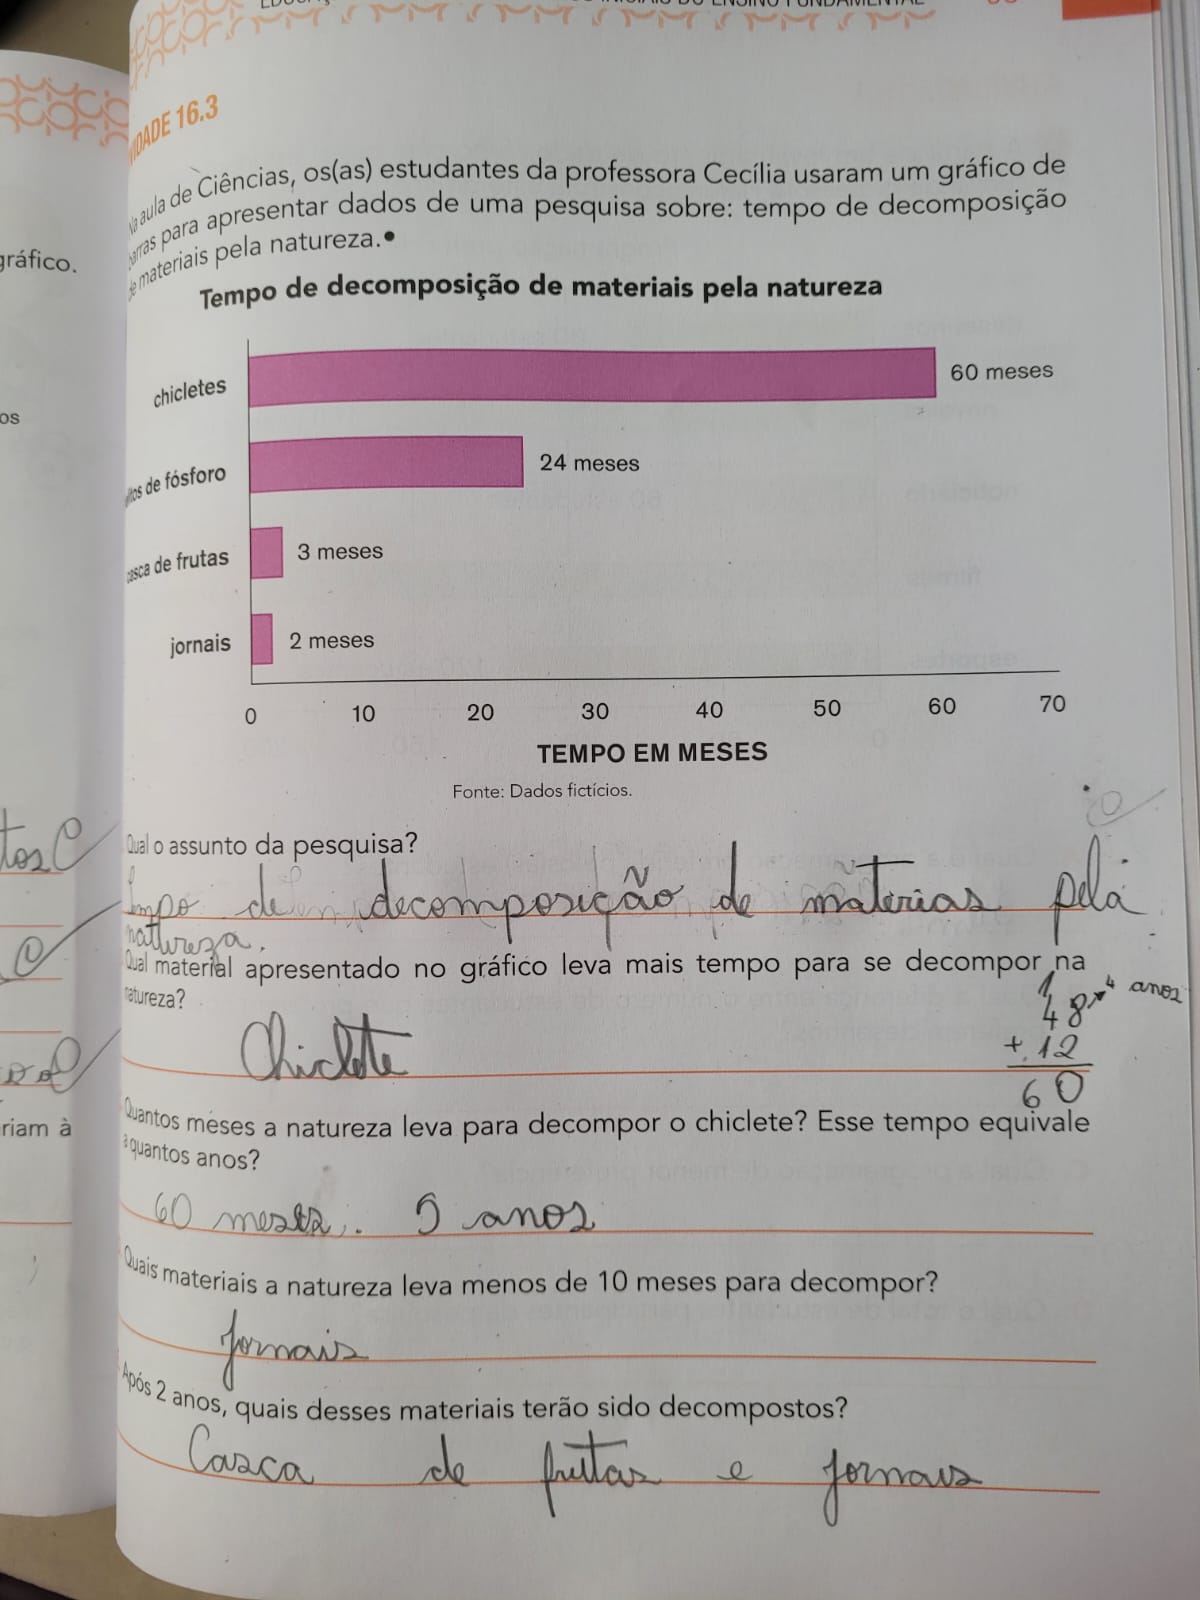 INICIAIS DO ENSINO FUNDAMENTAL
VIDADE 16.3
Na aula de Ciências, os(as) estudantes da professora Cecília usaram um gráfico de
barras para apresentar dados de uma pesquisa sobre: tempo de decomposição
de materiais pela natureza.
gráfico.
Tempo de decomposição de materiais pela natureza
chicletes
60 meses
os
litos de fósforo
24 meses
casca de frutas
3 meses
jornais
2 meses
0 10 20 30 40 50 60 70
TEMPO EM MESES
Fonte: Dados fictícios.
Qual o assunto da pesquisa?
tos
Tempo de decomposição de materias pela
natureza.
Qual material apresentado no gráfico leva mais tempo para se decompor na
natureza?
1
48 4 anos
+ 12
60
Chiclete
Quantos meses a natureza leva para decompor o chiclete? Esse tempo equivale
a quantos anos?
riam à
60 meses. 5 anos
Quais materiais a natureza leva menos de 10 meses para decompor?
Jornais
Após 2 anos, quais desses materiais terão sido decompostos?
Casca de frutas e jornais